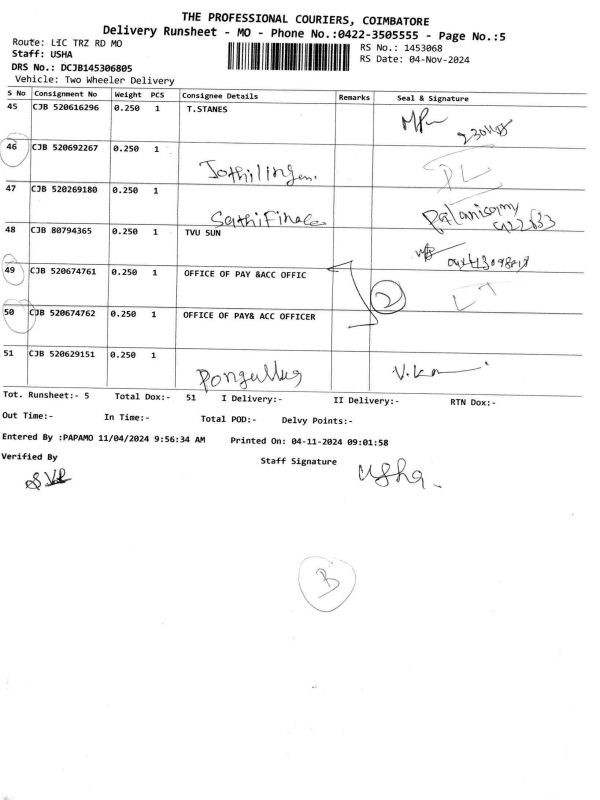 THE PROFESSIONAL COURIERS, COIMBATORE
Delivery Runsheet - MO - Phone No.:0422-3505555 - Page No.:5
Route: LIC TRZ RD MO
RS No.: 1453068
Staff: USHA
RS Date: 04-Nov-2024
DRS No.: DCJB145306805
Vehicle: Two Wheeler Delivery
S No Consignment No Weight PCS Consignee Details Remarks Seal & Signature
45 CJB 520616296 0.250 1 T.STANES
46 CJB 520692267 0.250 1
DL
47 CJB 520269180 0.250 1
Palanisamy
48 CJB 80794365 0.250 1 TVU SUN
49 CJB 520674761 0.250 1 OFFICE OF PAY &ACC OFFIC
2
50 CJB 520674762 0.250 1 OFFICE OF PAY& ACC OFFICER
51 CJB 520629151 0.250 1
Tot. Runsheet:- 5 Total Dox:- 51 I Delivery:- II Delivery:- RTN Dox:-
Out Time:- In Time:- Total POD:- Delvy Points:-
Entered By :PAPAMO 11/04/2024 9:56:34 AM Printed On: 04-11-2024 09:01:58
Verified By
Staff Signature
Usha
B